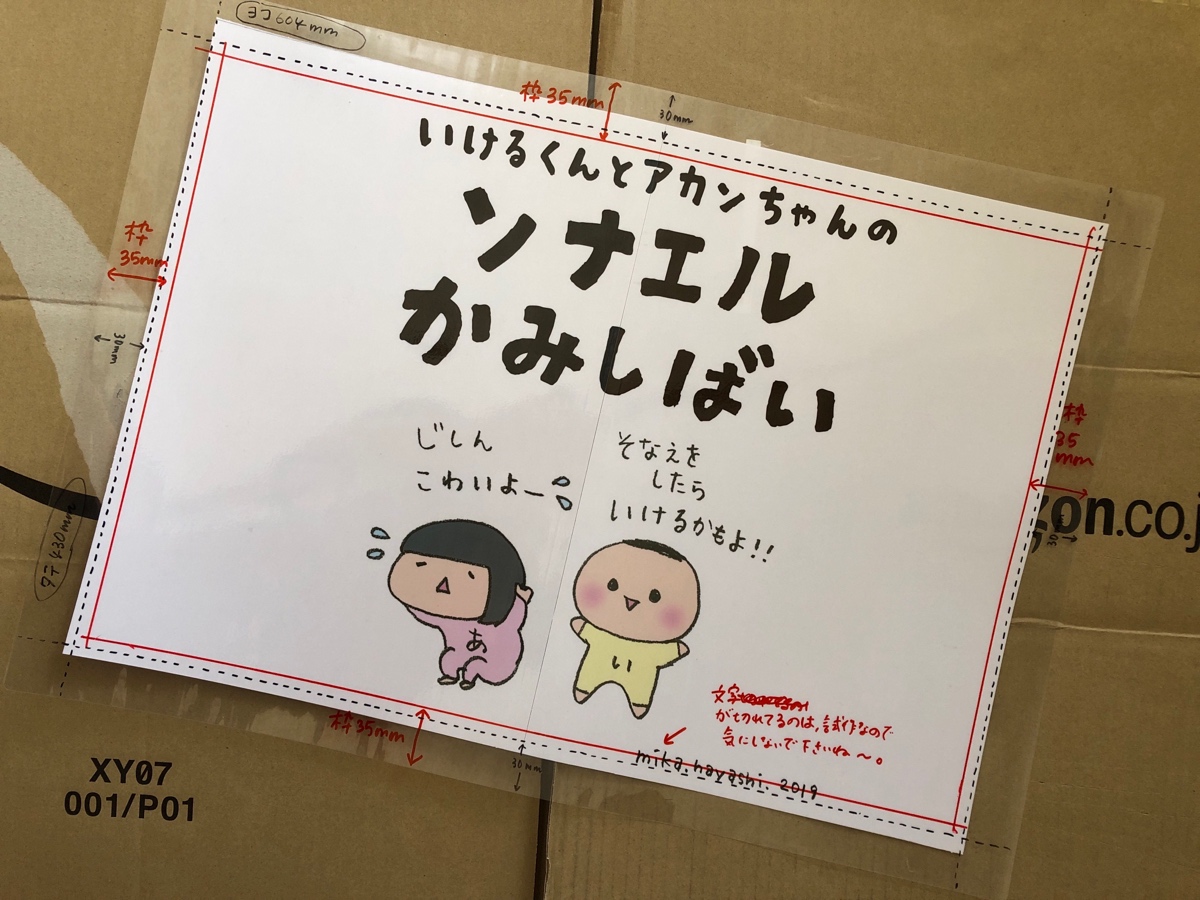 ヨコ604mm
枠35mm
30mm
いけるくんとアカンちゃんの
ソナエル
かみしばい
枠
35mm
30mm
じしん
こわいよー
そなえを
したら
いけるかもよ!!
枠
35
mm
zon.co.j
30
タテ430mm
あ
い
文字
が切れてるのは、試作なので
気にしないで下さいね〜。
枠35mm
30mm
mika.hayashi. 2019
XY07
001/P01